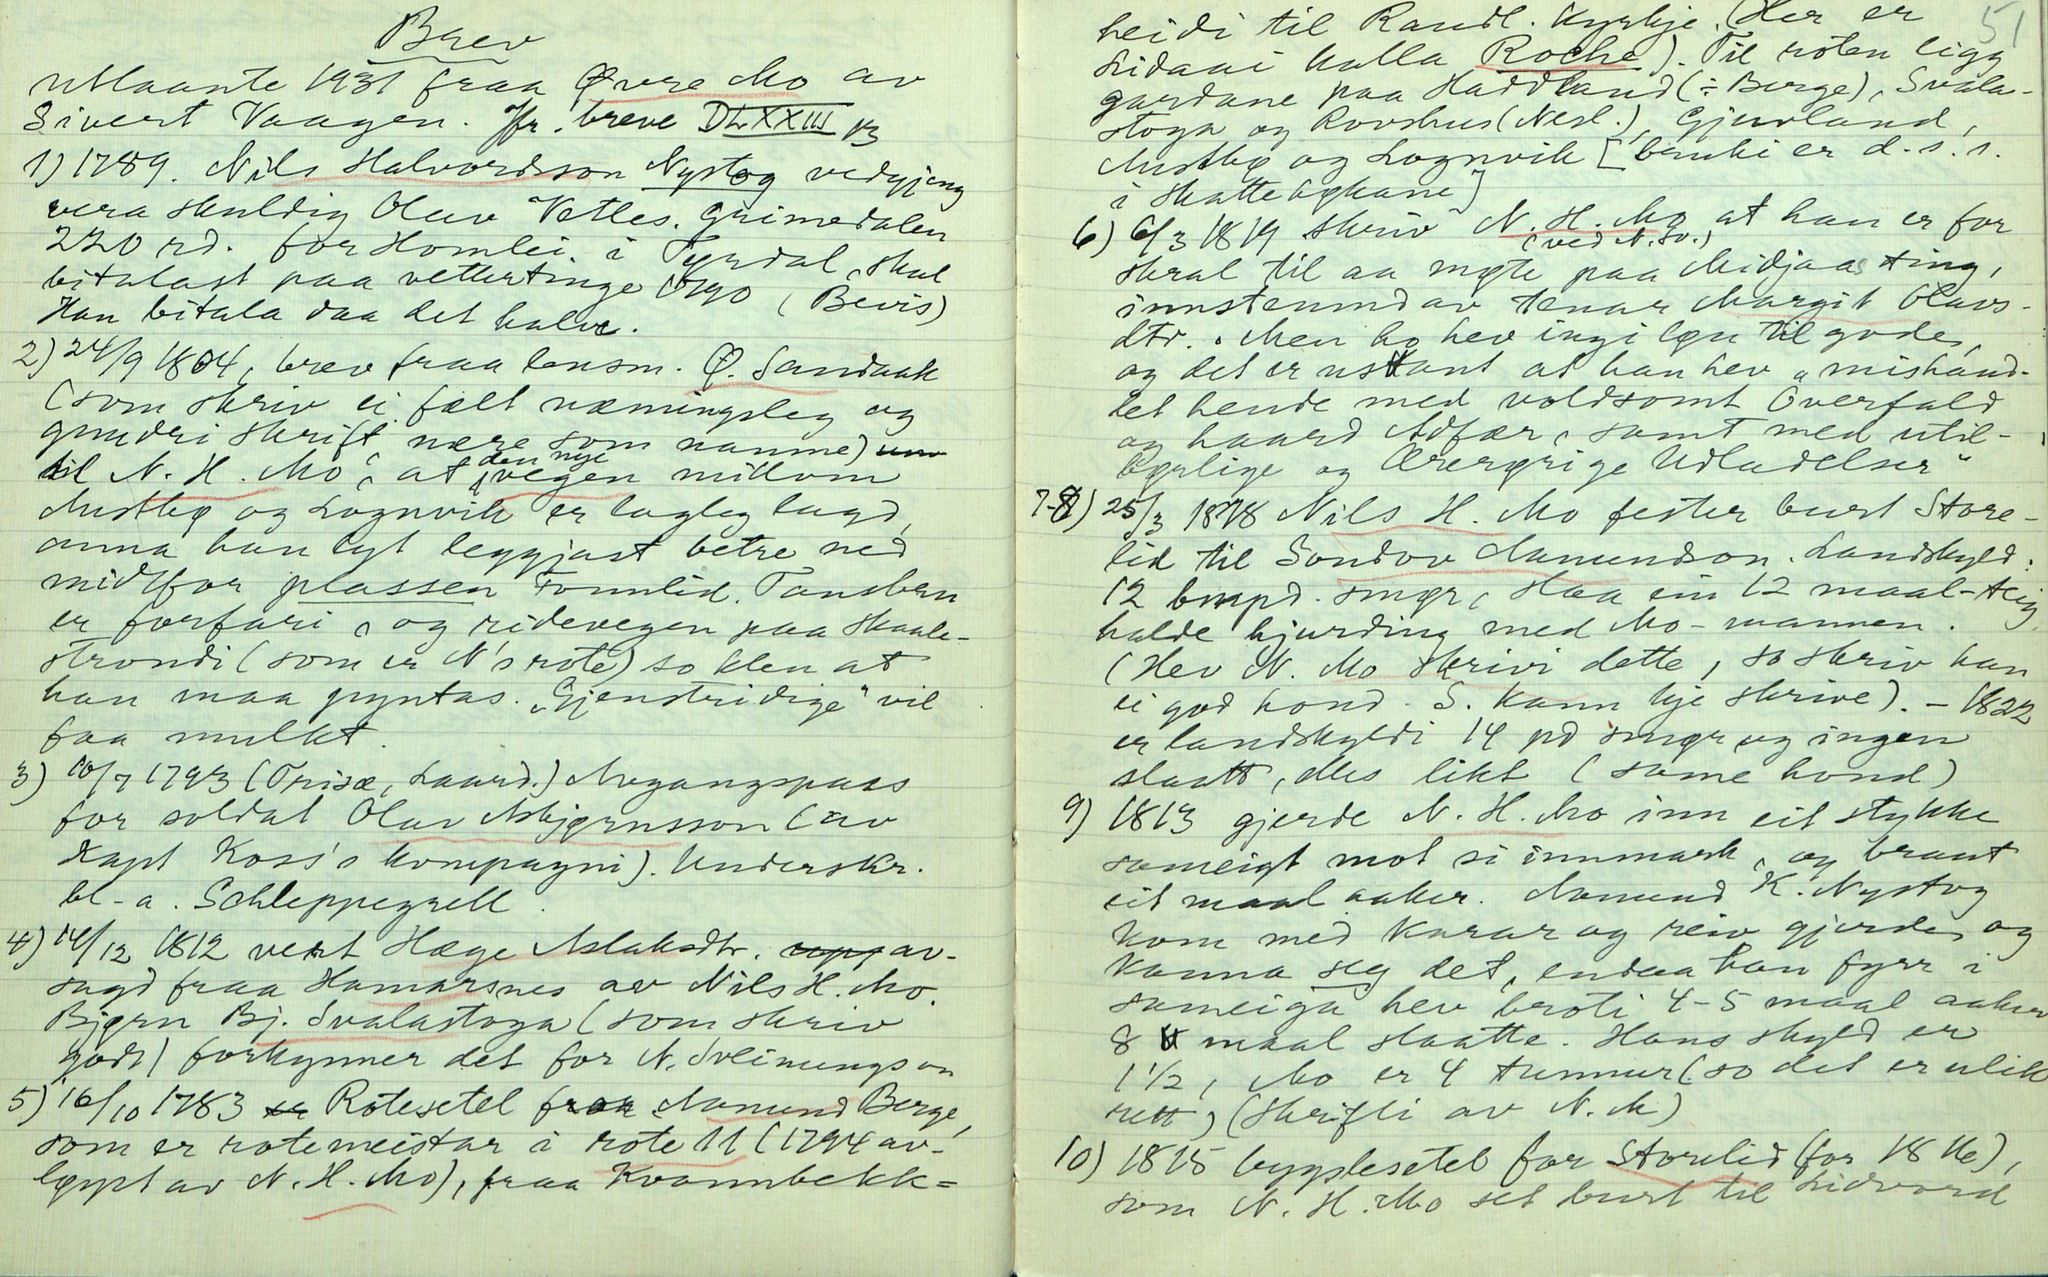 Brev
utlaante 1931 fraa Øvre Mo av
Sivert Vaagen. Jfr. breve DLXXIII 13
1) 1789. Nils Halvordsson Nystog vedgjeng
vera skuldig Olav Vetles. Grimedalen
220 rd. for Homlei i Tyrdal, skal
bitalast paa vettertinge 1790 (Bevis)
Han bitala daa det halve.
2) 24/9 1804, brev fraa lensm. Ø. Sandaak
(som skriv ei fælt næmingsleg og
grundri skrift, nære som namne)
til N. H. Mo, at den nye vegen millom
Austbø og Lognvik er lagleg lagd,
anna han lyt leggjast betre ned
midtfor plassen Fonnlid. Tansbrun
er forfari, og ridevegen paa Skaale-
strondi (som er N's rote) so klen at
han maa pyntas. "Gjenstridige" vil
faa mulkt.
3) 10/7 1793 (Trisæ, Laard.) Avgangspass
for soldat Olav Asbjørnsson (av
Kapt Koss's kompagni). Underskr.
bl-a. Schleppegrell.
4) 14/12 1812 vert Hæge Aslaksdtr. av-
sagd fraa Hamarsnes av Nils H. Mo.
Bjørn Bj. Svalastoga (som skriv
godt) forkynner det for N. Sveinungson
5) 16/10 1783 Rotesetel fraa Aamund Berge,
som er rotemeistar i rote 11 (1794 av-
løyst av N. H. Mo), fraa Kvannbekk=
51
heidi til Raudl. Kyrkje. (Her er
sidan i kalla Roche). Til roten ligg
gardane paa Haddland (÷ Berge), Svala-
stoga og Rovshus (Nesl.), Gjuvland,
Austbø og Lognvik [bruki er d. s. s.
i skattebøkane]
6) 6/3 1819 skriv N. H. Mo (ved N. Sv.) at han er for
skral til aa møte paa Midjaas ting,
innstemnd av tenar Margit Olavs-
dtr. Men ho hev ingi løn til gode,
og det er usant at han hev "mishand-
let hende med voldsomt Overfald
og haard Adfær, samt med util-
børlige og Ærerørige Udladelser"
7-8) 25/3 1818 Nils H. Mo fester burt Store-
lid til Sondov Aamundson. Landskyld:
12 bmpd. smør, slaa ein 12 maal-teig,
halde hjurding med Mo-mannen.
(Hev N. Mo skrivi dette, so skriv han
ei god hond. S. kann kje skrive). - 1822
er landskyldi 14 pd smør og ingen
slaatt, elles likt (same hond)
9) 1813 gjerde N. H. Mo inn eit stykke
sameigt mot si innmark, og braut
eit maal aaker. Aamund K. Nystog
kom med karar og reiv gjerde, og
kanna seg det, endaa han fyrr i
sameiga hev broti 4-5 maal aaker
8 maal slaatte. Hans skyld er
1 1/2, Mo er 4 tunnur (so det er ulik
rett) (skrifti av N. M)
10) 1815 bygslesetel for Storelid (for 1816),
som N. H. Mo set burt til Lidvord